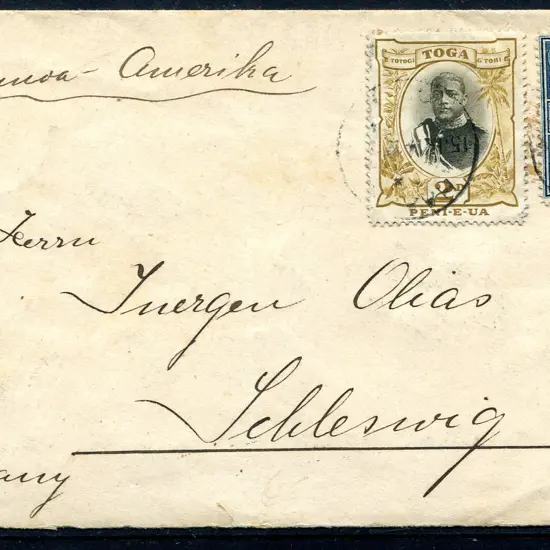 moa - Amerika
TOGA
TOTOGI G'TOHI
2D
PENI-E-UA
Herrn
Juergen Olias
Schleswig
any